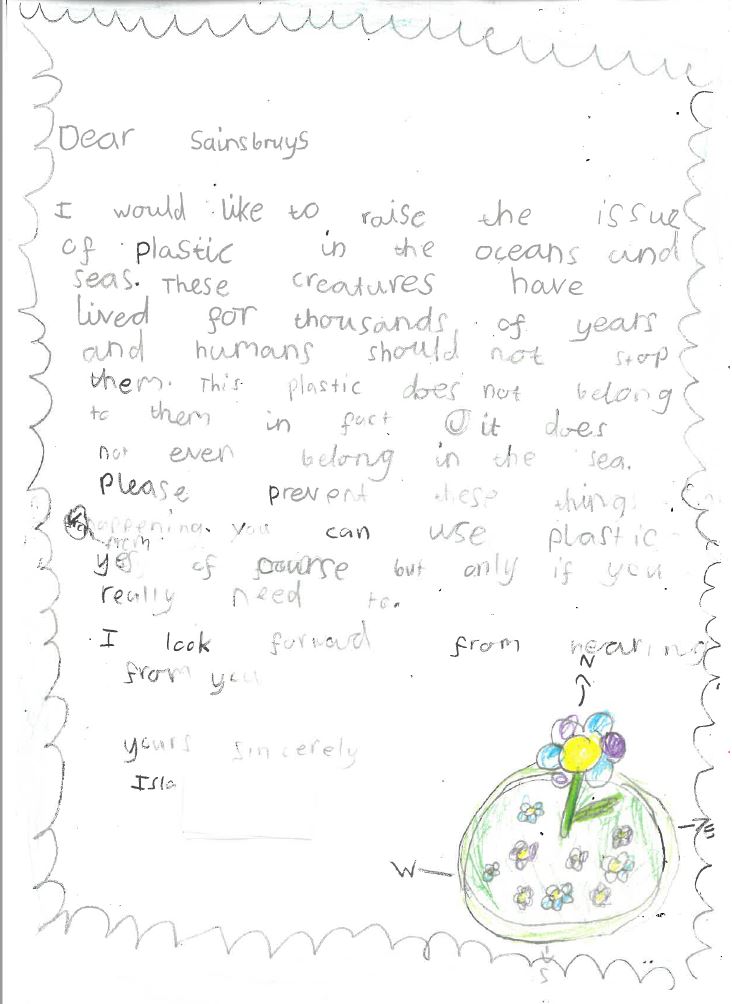 Dear Sainsbruys
I would like to raise the issue
of plastic in the oceans and
seas. These creatures have
lived for thousands of years
and humans should not stop
them. This plastic does not belong
to them in fact it does
not even belong in the sea.
Please prevent these things
happening. You can use plastic
from
yes of course but only if you
really need to.
I look forward from hearing
from you
N
yours sincerely
Isla
E
W
S